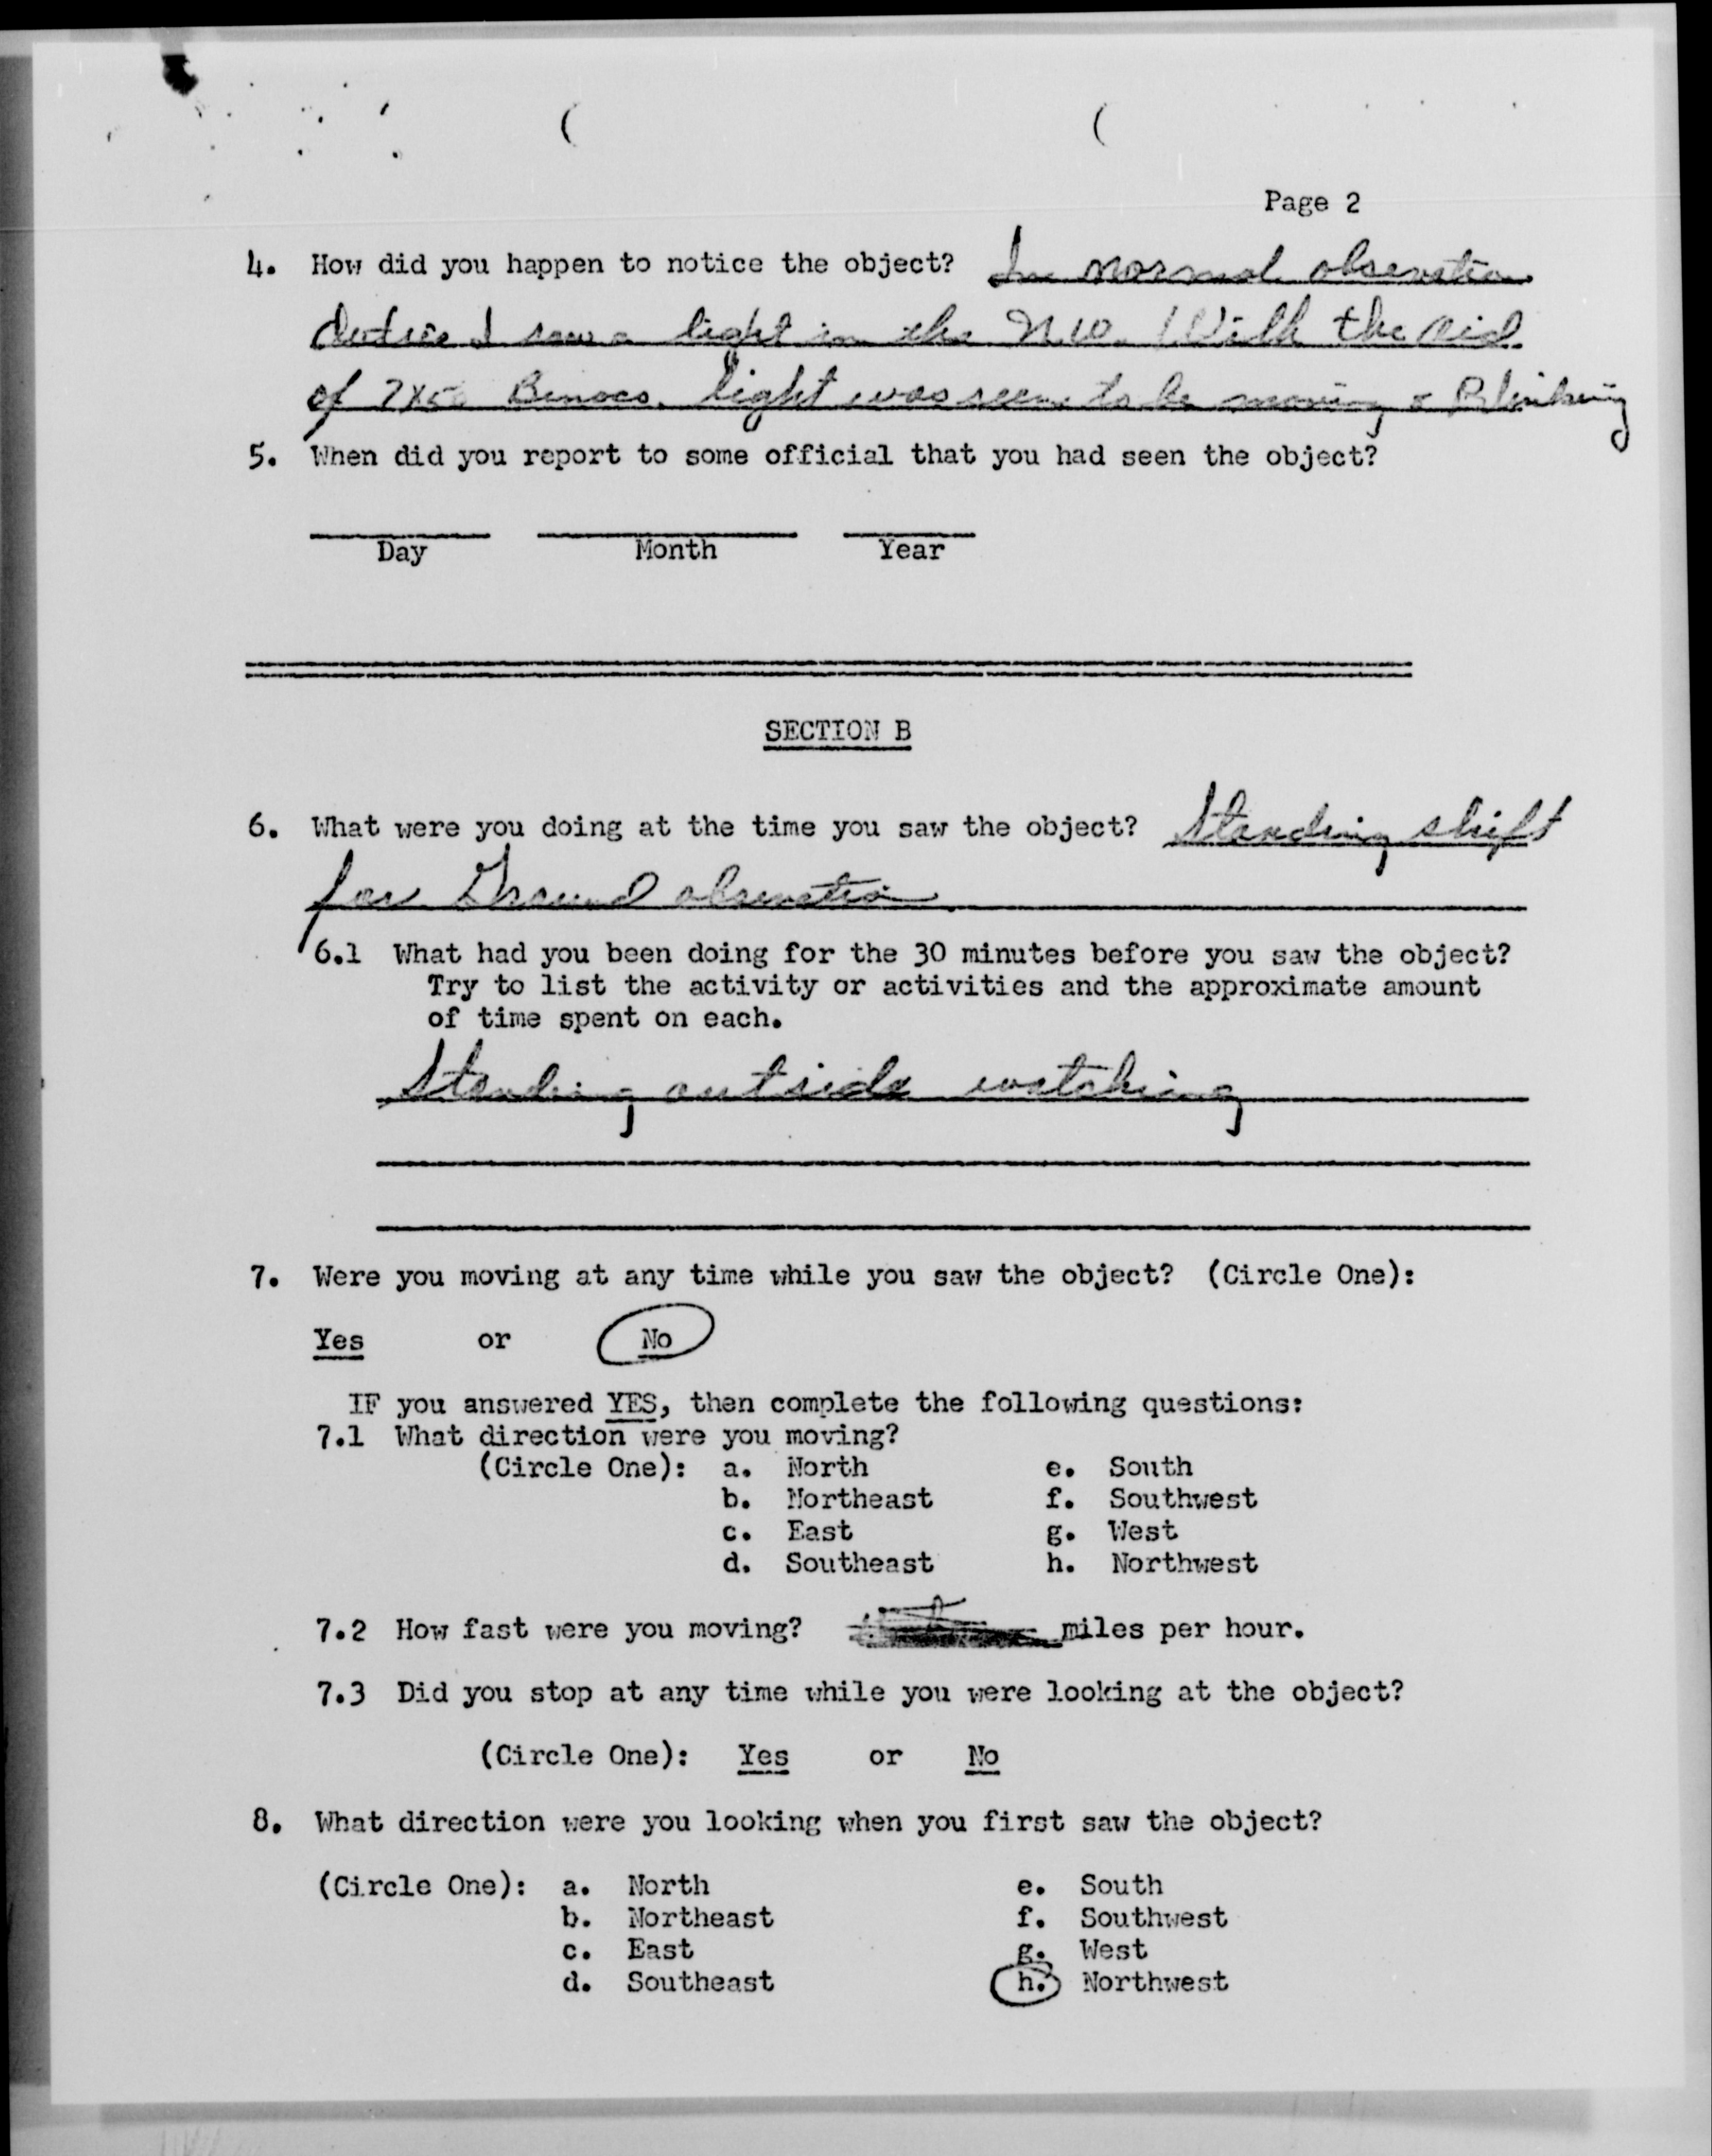 Page 2
4. How did you happen to notice the object? In normal observation
duties I saw a light in the N.W. With the aid
of 7X50 Binocs. light was seen to be moving & Blinking
5. When did you report to some official that you had seen the object?
Day Month Year
SECTION B
6. What were you doing at the time you saw the object? Standing shift
for Ground observation
6.1 What had you been doing for the 30 minutes before you saw the object?
Try to list the activity or activities and the approximate amount
of time spent on each.
Standing outside watching
7. Were you moving at any time while you saw the object? (Circle One):
Yes or No
IF you answered YES, then complete the following questions:
7.1 What direction were you moving?
(Circle One): a. North e. South
b. Northeast f. Southwest
c. East g. West
d. Southeast h. Northwest
7.2 How fast were you moving? miles per hour.
7.3 Did you stop at any time while you were looking at the object?
(Circle One): Yes or No
8. What direction were you looking when you first saw the object?
(Circle One): a. North e. South
b. Northeast f. Southwest
c. East g. West
d. Southeast h. Northwest